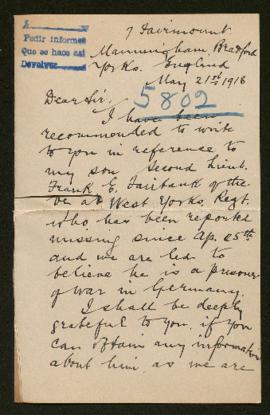 7 Fairmount
A
Pedir informes
Manningham Bradford
Que se hace así
Yorks. England
Devolver
May 21st 1918
Dear Sir,
5802
I have been
recommended to write
to you in reference to
my son, Second Lieut.
Frank E. Fairbank of the
West Yorks. Regt.
who has been reported
missing since Ap. 25th
and we are led to
believe he is a prisoner
of war in Germany.
I shall be deeply
grateful to you, if you
can obtain any information
about him, as we are